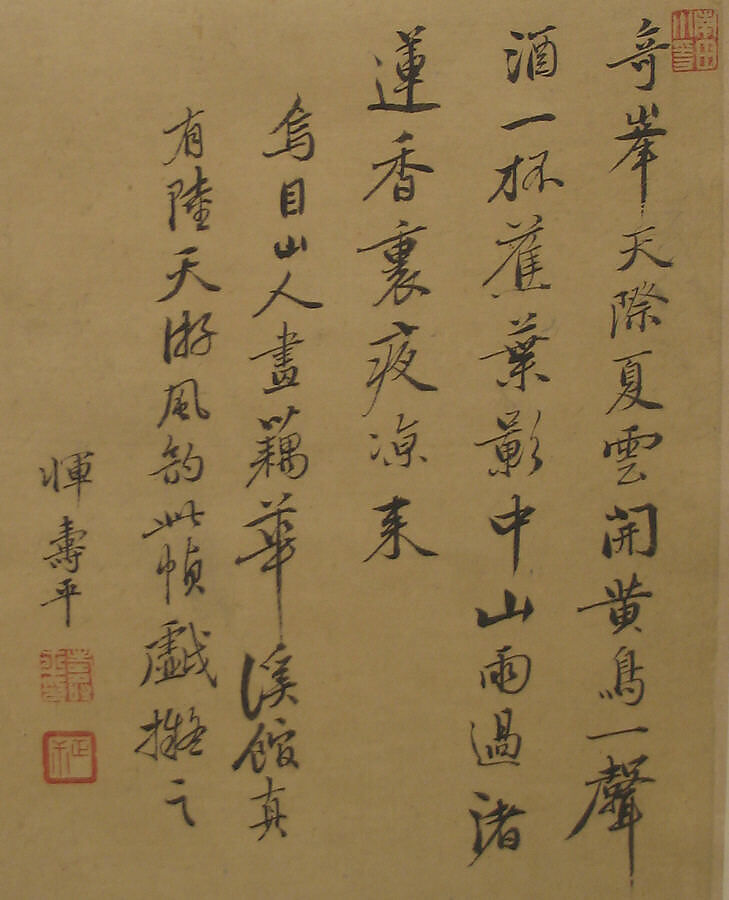 奇峯天際夏雲開黃鳥一聲
酒一杯蕉葉影中山雨過渚
蓮香裏夜涼来
烏目山人畫藕華溪館真
有陸天游風韵此幀戯擬之
惲壽平